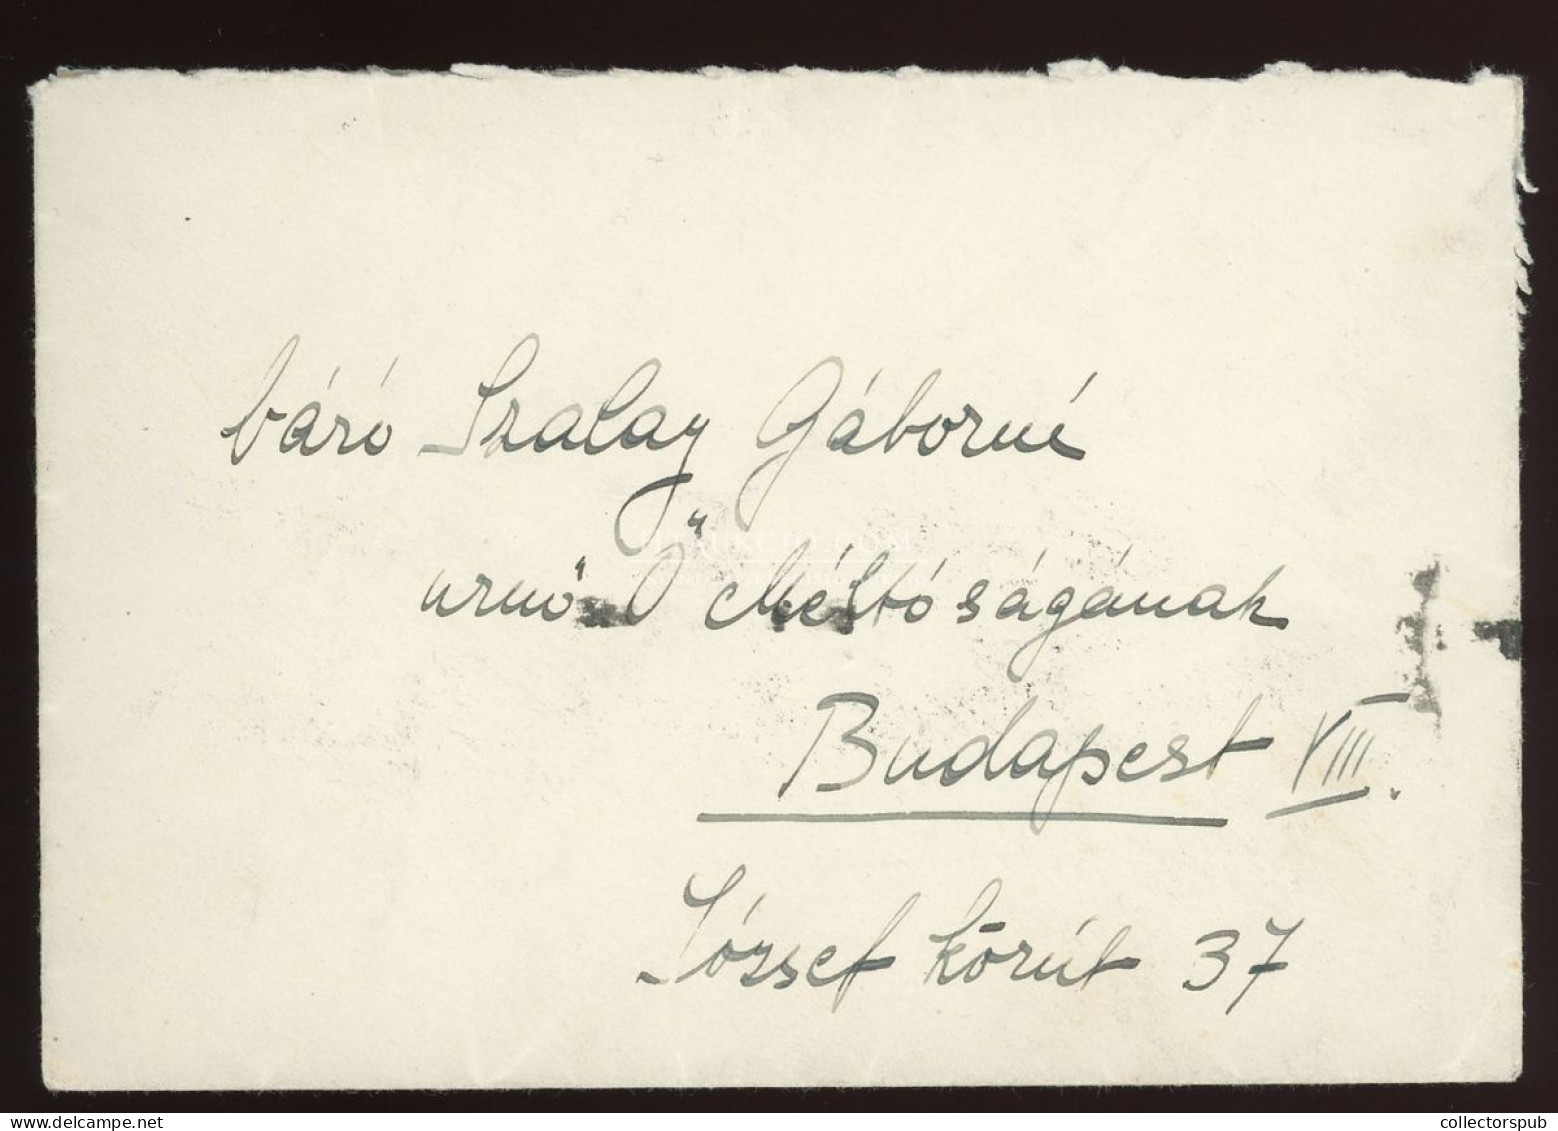 báró Szalay Gáborné
urnő Ő Méltóságának
Budapest VIII.
József körút 37
www.delcampe.net
collectorspub